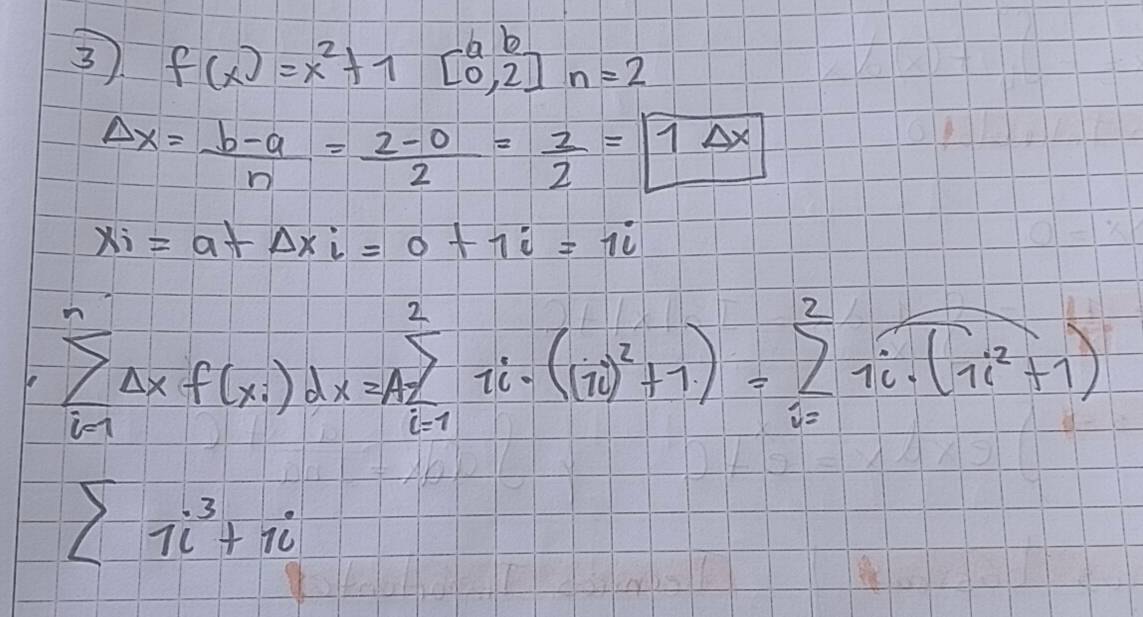 3) f(x) = x² + 1 [0, 2] a b n = 2
Δx = b-a/n = 2-0/2 = 2/2 = 1 Δx
xi = a + Δx i = 0 + 1i = 1i
n ∑ i=1 Δx f(xi) dx = A = 2 ∑ i=1 1i · ((1i)² + 1) = 2 ∑ i= 1i · (1i² + 1)
∑ 1i³ + 1i